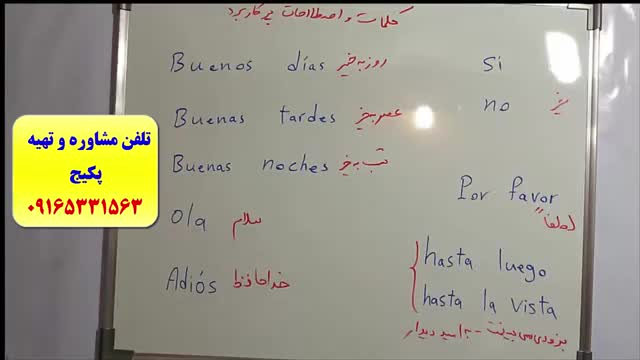 کلمات و اصطلاحات پر کاربرد
Buenos días روز به خیر
Buenas tardes عصر به خیر
Buenas noches شب به خیر
Ola سلام
Adiós خداحافظ
Si
no
Por favor
لطفاً
hasta luego
hasta la vista
بزودی می بینمت - به امید دیدار
تلفن مشاوره و تهیه
پکیج
۰۹۱۶۵۳۳۱۵۶۳